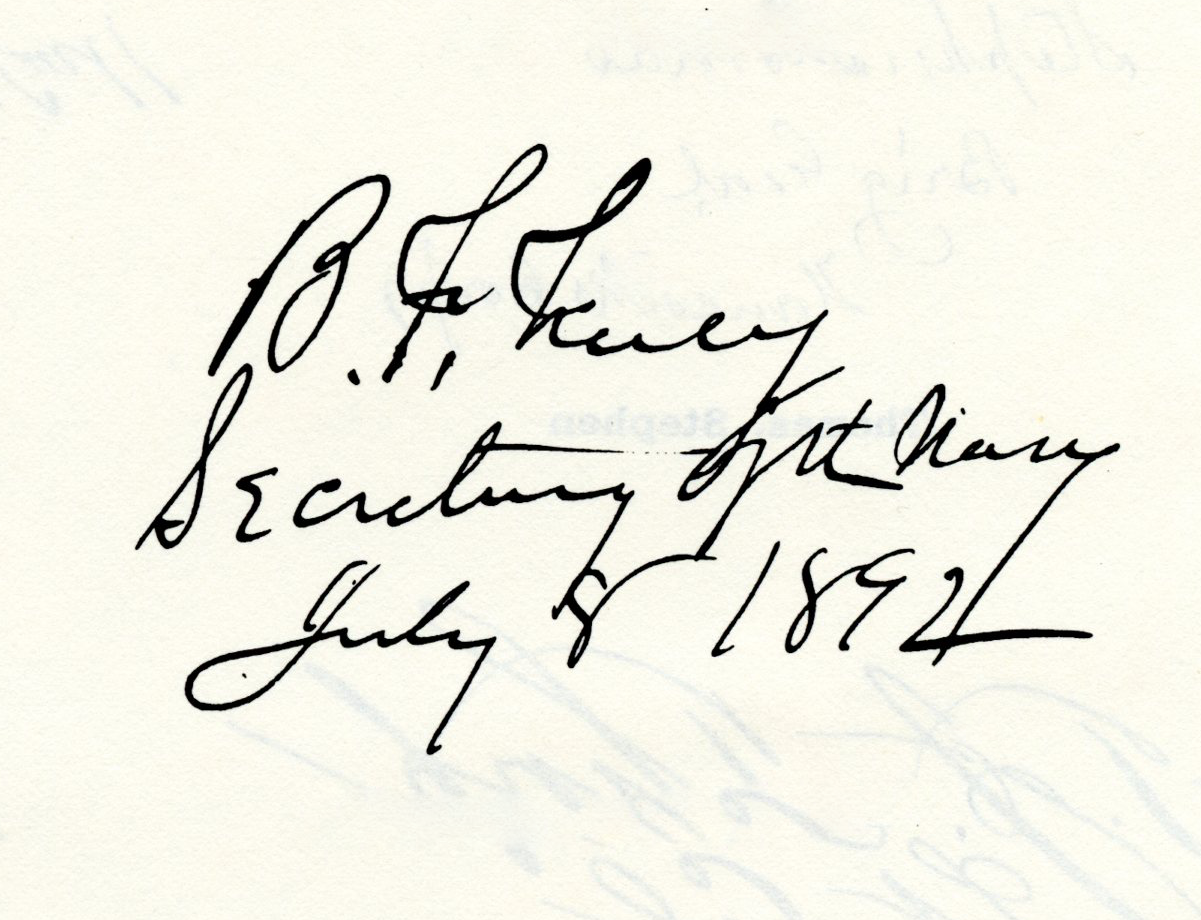 B. F. Tracy
Secretary of the Navy
July 8 1892